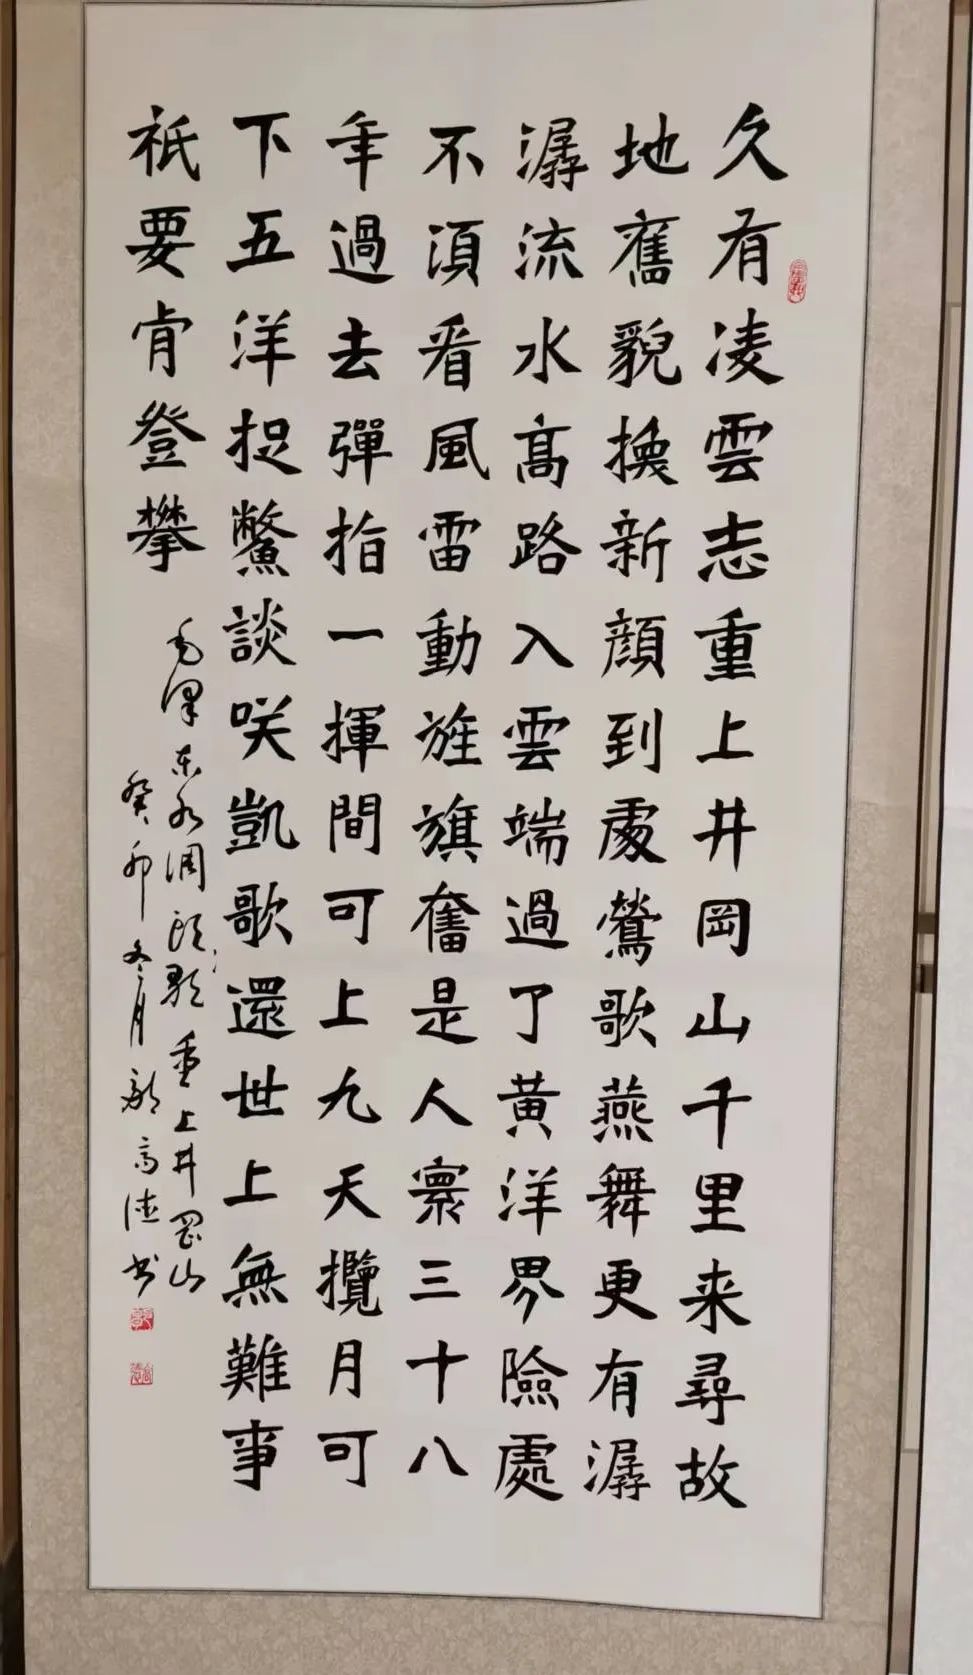 久有凌雲志重上井岡山千里来尋故
地舊貌換新顔到處鶯歌燕舞更有潺
潺流水高路入雲端過了黄洋界險處
不須看風雷動旌旗奮是人寰三十八
年過去彈指一揮間可上九天攬月可
下五洋捉鱉談咲凱歌還世上無難事
祇要肯登攀
毛澤东水调歌頭重上井岡山
癸卯冬月郭高德书